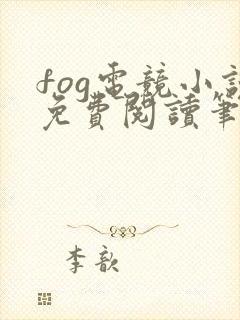 fog電競小說
免費閱讀筆
李歆